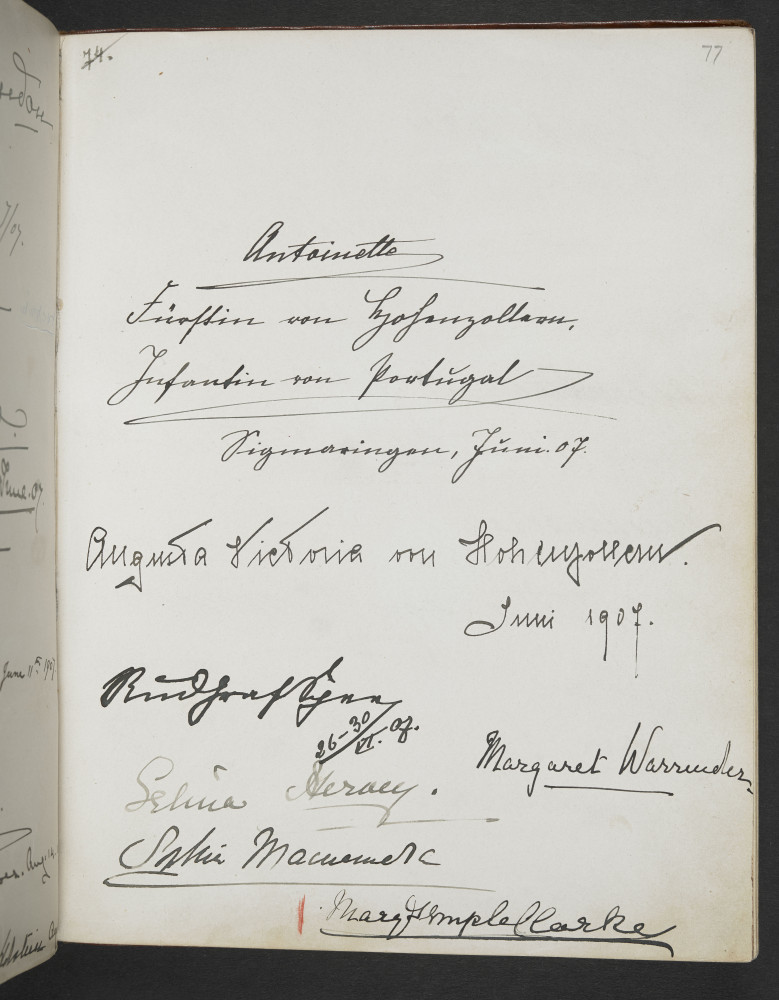 74.
77
Antoinette
Fürstin von Hohenzollern,
Infantin von Portugal
Sigmaringen, Juni. 07.
Augusta Victoria von Hohenzollern.
Juni 1907.
Rud Graf Spee
26-30/VI. 07.
Margaret Warrender.
Selina Hervey.
Sophie Macnamara
Mary Temple Clarke
June 11th 1907